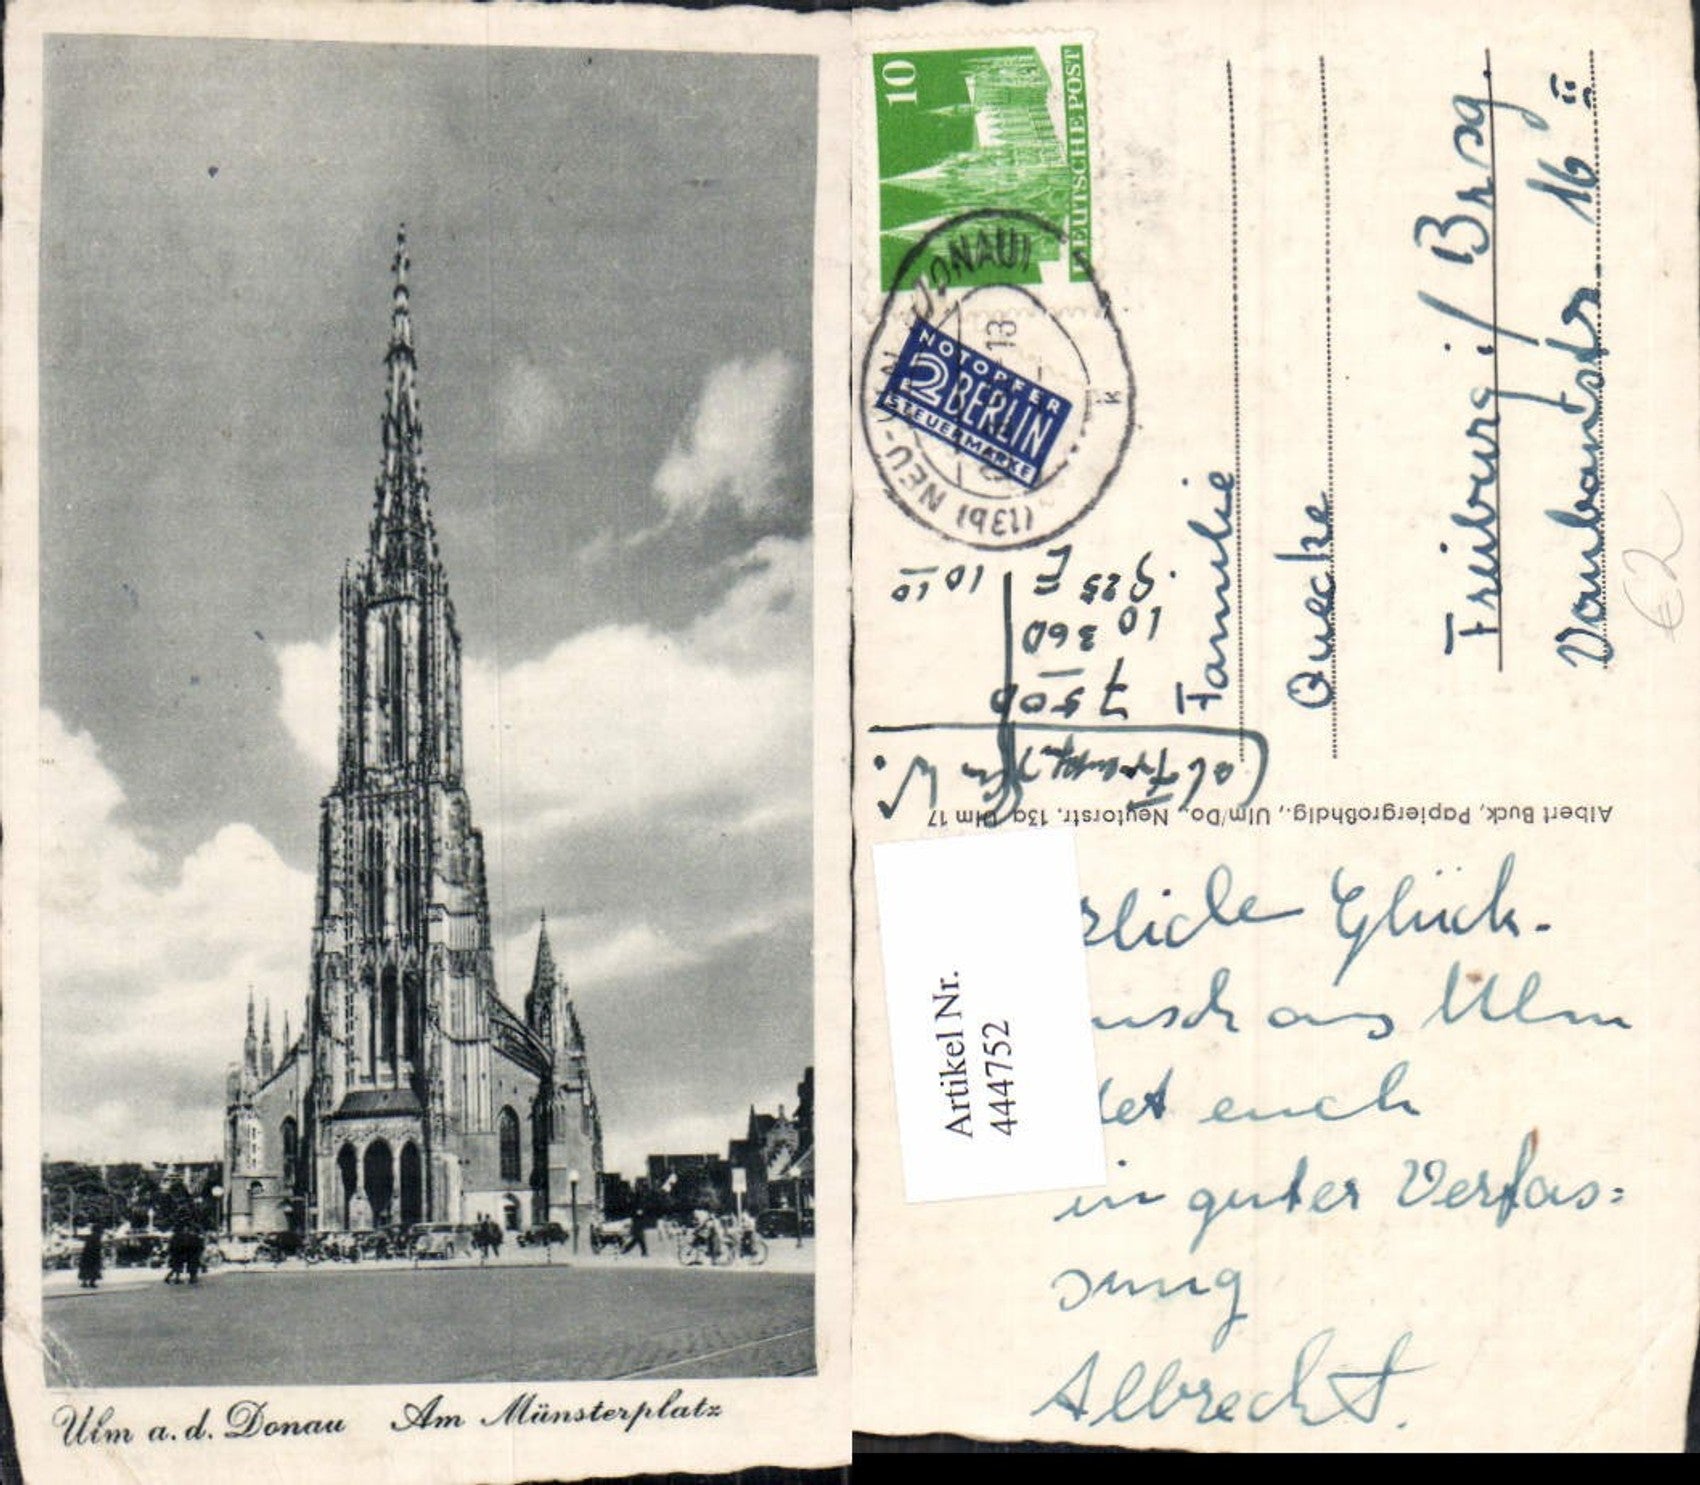 Ulm a. d. Donau Am Münsterplatz
10
DEUTSCHE POST
(13b) NEU-ULM (DONAU)
13
k
NOTOPFER
2 BERLIN
STEUERMARKE
Familie
Quecke
Freiburg i/Brsg.
10 10
925
10 360
7 500
ab
Albert Buck, Papiergroßhdlg., Ulm/Do., Neutorstr. 13a Ulm 17
Artikel Nr.
444752
rliche Glück-
unsch aus Ulm
det euch
in guter Verfas=
sung
Albrecht.
€2